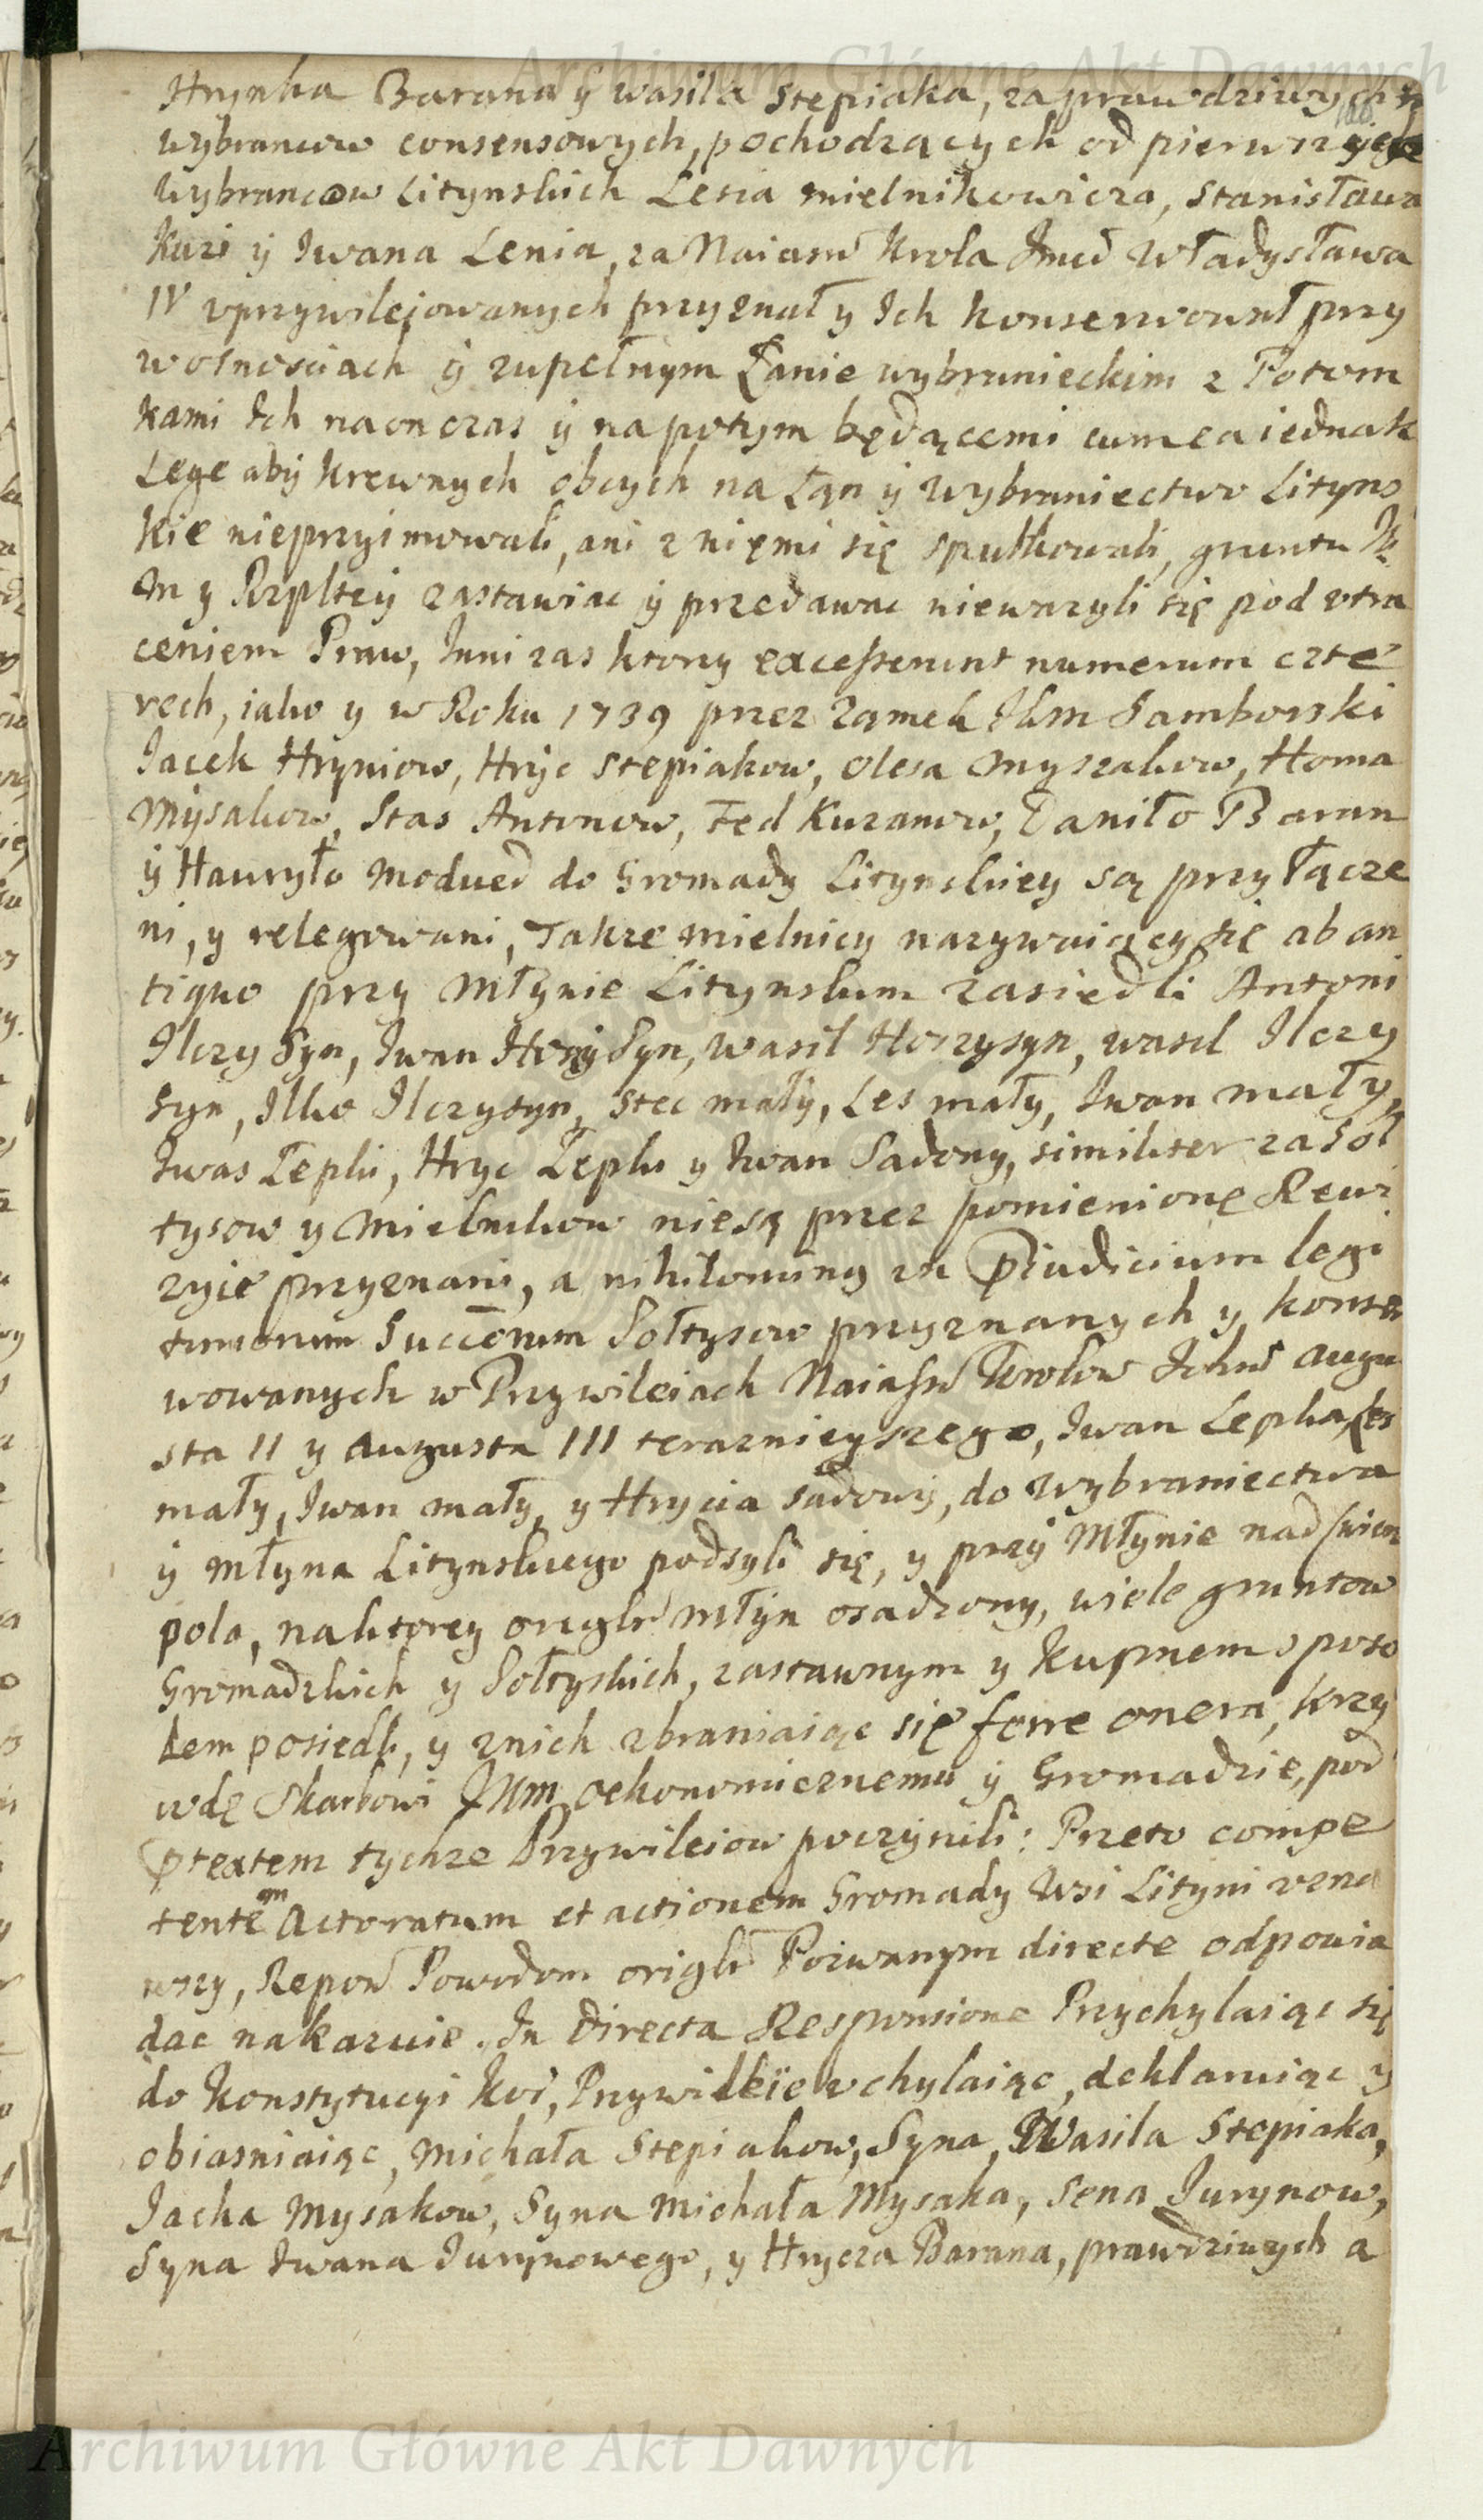 Archiwum Główne Akt Dawnych
Hrynka Barana y Wasila Stepiaka, za prawdziwych
wybrancow consensowych, pochodzących od pierwszych
wybrancow Litynskich Lesia Mielnikowicza, Stanisława
Kuzi y Iwana Lenia, za Naiasń Krola Jmći Władysława
IV uprzywilejowanych przyznał y Ich konserwował przy
wolnosciach y zupełnym Łanie wybranieckim z Potom
kami Ich na on czas y na potym będącemi cum ea iednak
Lege aby krewnych obcych na Łan y wybraniectwo Lityns
kie nieprzyimowali, ani z niemi się społkowali, gruntu Jk
m y Rzpltey zastawiac y przedawac niewazyli się pod utra
ceniem Praw, Inni zas ktory excesserunt numerum czte
rech, iako y w Roku 1739 przez Zamek JKm Samborski
Jacek Hryniow, Hryc Stepiakow, Olexa Myszakow, Homa
Mysakow, Stas Antonow, Fed Kuzanow, Daniło Baran
y Hawryło Modwed do Gromady Litynskiey są przyłącze
ni, y relegowani, Takze mielnicy nazywaiący się ab an
tiquo przy Młynie Litynskim zasiedli Antoni
Ilczy Syn, Iwan Syn, Wasil Hoszysyn, Wasil Ilczy
Syn, Ilko Ilczysyn, Stec mały, Les mały, Iwan mały,
Iwas Łepki, Hryc Łepki y Iwan Sadowy, similiter za Soł
tysow y Mielnikow niesą przez pomienionę Rewi
zyie przyznani, a nihilominus in Pjudicium legi
timorum Succorum Sołtysow przyznanych y konser
wowanych w Przywileiach Naiasń Krolow Ichm̃ Augu
sta II y Augusta III terazniejszego, Iwan Lepka, Les
mały, Iwan mały, y Hrycia Sadowy, do wybraniectwa
y młyna Litynskiego podszyli się, y przy Młynie nad
pola, naktorey origlr młyn osadzony, wiele gruntow
Gromadzkich y Sołtyskich, zastawnym y kupnem sposo
bem posiedli, y znich zbraniaiąc się ferre onera, krzy
wdę Skarbowi JKm oekonomicznemu y Gromadzie, pod
Ptextem tychze Przywileiow poczynili: Przeto compe
tentem Actoratum et actionem Gromady Wsi Lityni uzna
wszy, Repoń Powodom origlr Pozwanym directe odpowia
dac nakazuie. In directa Responsione Przychylaiąc się
do Konstytucyi Koř, Przywileie uchylaiąc, deklaruiąc y
obiasniaiąc, Michała Stepiakow, Syna Wasila Stepiaka,
Jacka Mysakow, Syna Michała Mysaka, Sena Jurynow,
Syna Iwana Jurynowego, y Hrycza Barana, prawdziwych a
Archiwum Główne Akt Dawnych